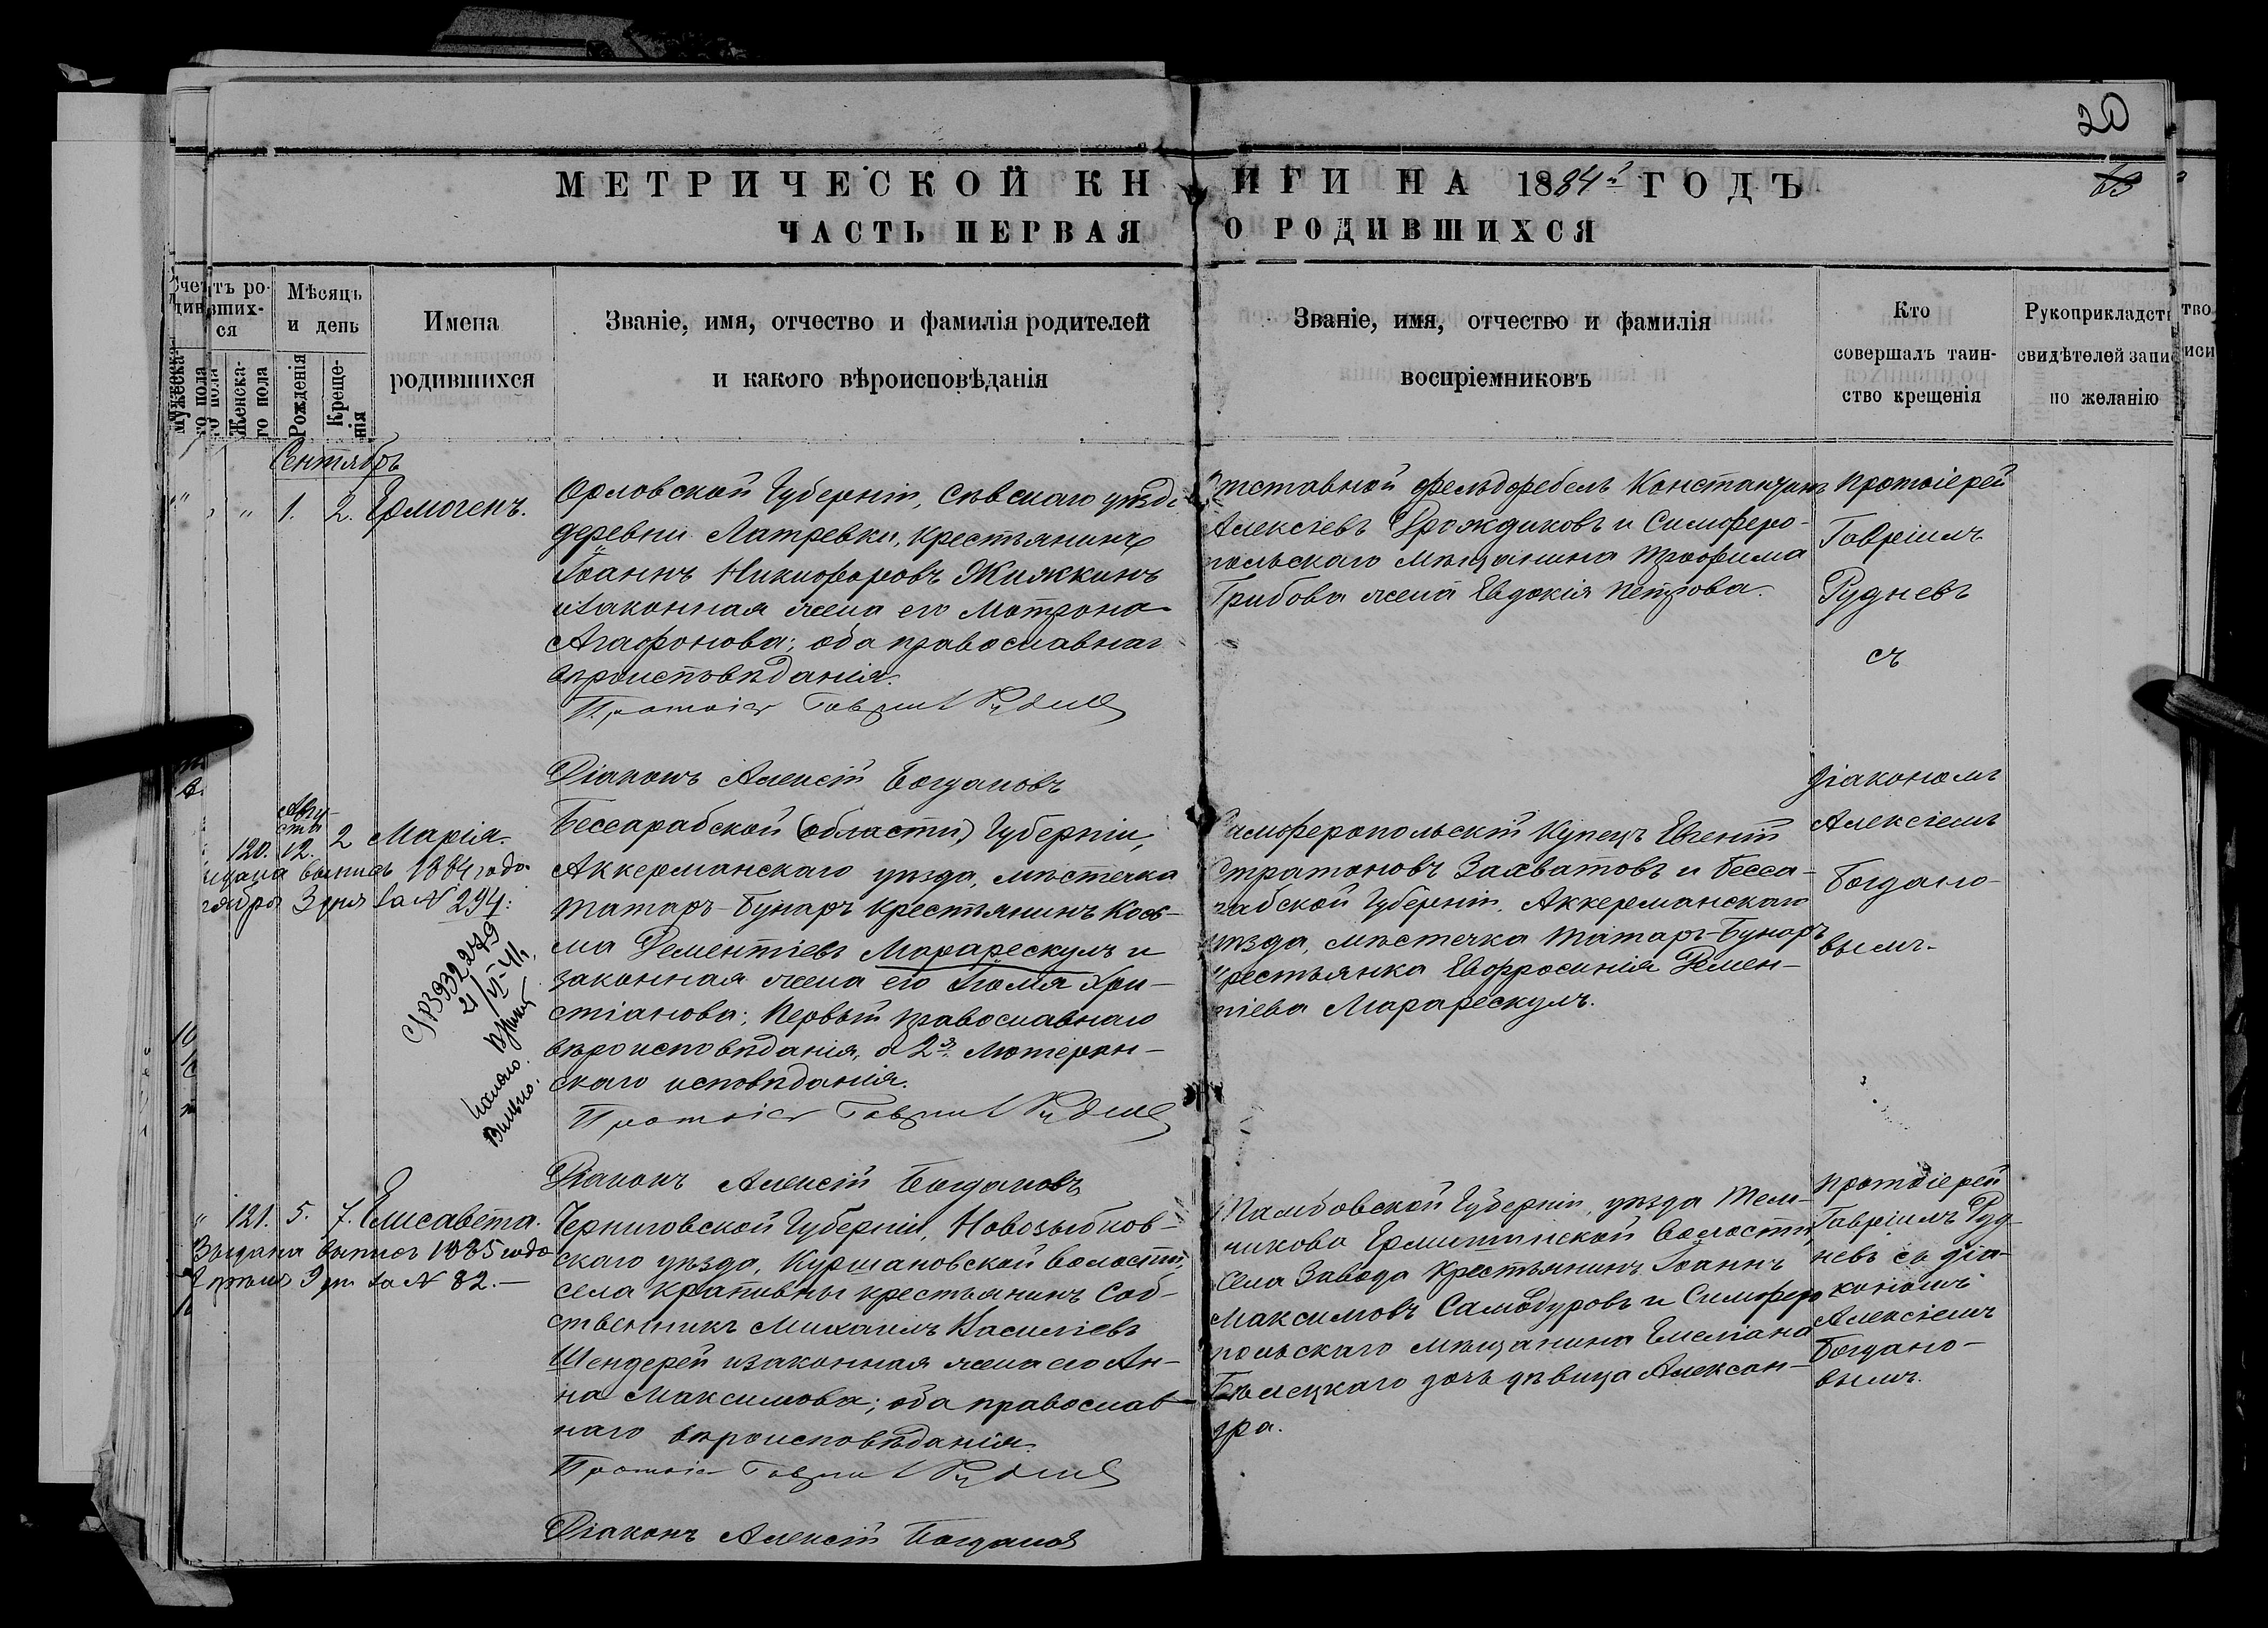 20
МЕТРИЧЕСКОЙ КНИГИ НА 1884й ГОДЪ
ЧАСТЬ ПЕРВАЯ О РОДИВШИХСЯ
Счетъ родившихся
Мужеска-го пола
Женска-го пола
Мѣсяцъ и день
Рожденія
Креще-нія
Имена
родившихся
Званіе, имя, отчество и фамилія родителей
и какого вѣроисповѣданія
Званіе, имя, отчество и фамилія
воспріемниковъ
Кто
совершалъ таин-
ство крещенія
Рукоприкладство
свидѣтелей записи
по желанію
Сентябрь
" 1. 2. Ермогенъ.
Орловской Губерніи, Сѣвскаго уѣзда
деревни Латревки, крестьянинъ
Іоаннъ Никифоровъ Жижкинъ
и законная жена его Матрона
Агафонова; оба православнаго
вѣроисповѣданія.
Протоіер Гавріил Руднев
Діаконъ Алексій Богдановъ
Отставной фельдфебель Константинъ
Алексіевъ Дрождиковъ и Симферо-
польскаго мѣщанина Трофима
Грибова жена Евдокія Петрова.
Протоіерей
Гавріилъ
Рудневъ
съ
діакономъ
Алексіемъ
Богдано-
вымъ.
Авгу-
ста
120. 12. 2 Марія.
выпись 1884 года
3 дня за № 294.
Бессарабской (области) Губерніи,
Аккерманскаго уѣзда, мѣстечка
Татаръ-Бунаръ крестьянинъ Кось-
ма Дементіевъ Марарескулъ и
законная жена его Юлія Хри-
стіанова; Первый православнаго
вѣроисповѣданія, а 2я Лютеран-
скаго исповѣданія.
Протоіер Гавріил Руднев
Діаконъ Алексій Богдановъ
Симферопольскій Купецъ Евгеній
Стратоновъ Захватовъ и Бесса-
рабской Губерніи, Аккерманскаго
уѣзда, мѣстечка Татаръ-Бунаръ
крестьянка Евфросинія Демен-
тіева Марарескулъ.
" 121. 5. 7. Елисавета.
Выдана выпись 1885 года
Апрѣля 9 дня за № 82.—
Черниговской Губерніи, Новозыбков-
скаго уѣзда, Куршановской волости,
села Крапивны крестьянинъ Соб-
ственникъ Михаилъ Василіевъ
Шендерей и законная жена его Ан-
на Максимова; оба православ-
наго вѣроисповѣданія.
Протоіер Гавріил Руднев
Діаконъ Алексій Богданов
Тамбовской Губерніи, уѣзда Тем-
никова Ермишинской Волости,
села Завода крестьянинъ Іоаннъ
Максимовъ Самодуровъ и Симферо-
польскаго мѣщанина Емеліана
Бѣлецкаго дочь дѣвица Алексан-
дра.
Протоіерей
Гавріилъ Руд-
невъ съ діа-
кономъ
Алексіемъ
Богдано-
вымъ.